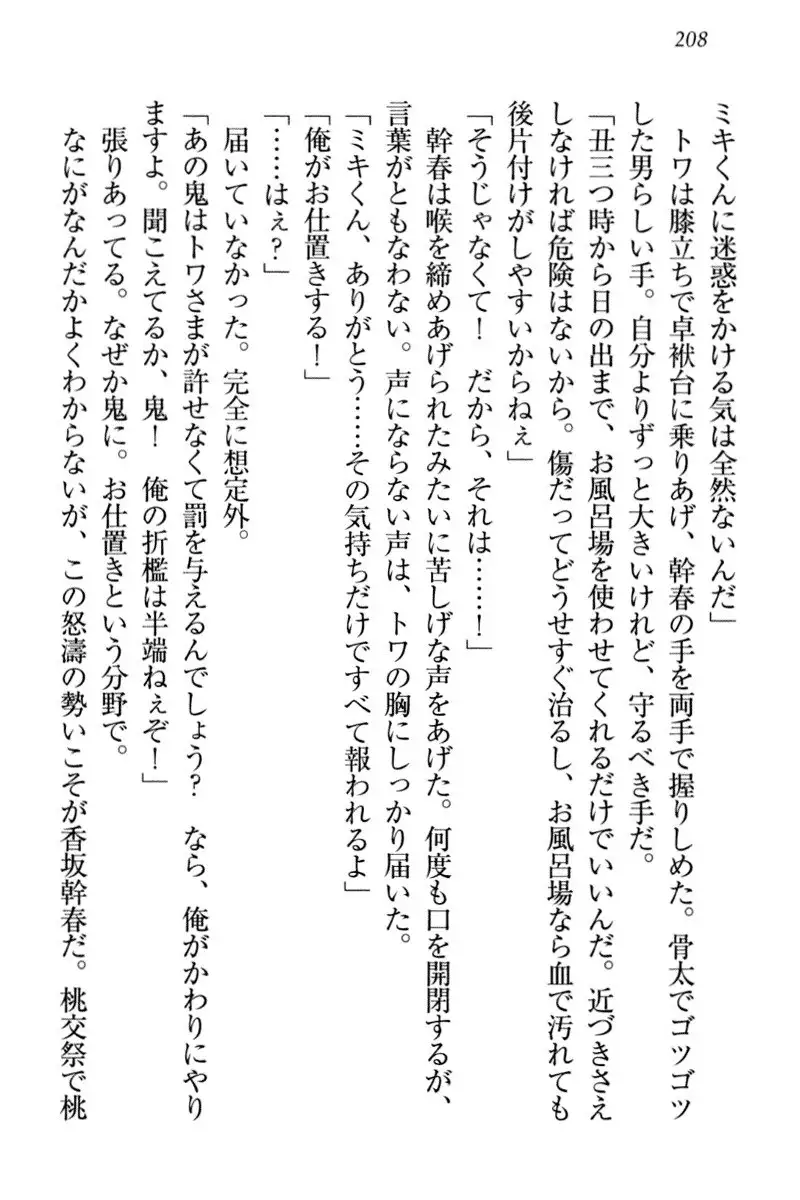 208
ミキくんに迷惑をかける気は全然ないんだ」
　トワは膝立ちで卓袱台に乗りあげ、幹春の手を両手で握りしめた。骨太でゴツゴツ
した男らしい手。自分よりずっと大きいけれど、守るべき手だ。
「丑三つ時から日の出まで、お風呂場を使わせてくれるだけでいいんだ。近づきさえ
しなければ危険はないから。傷だってどうせすぐ治るし、お風呂場なら血で汚れても
後片付けがしやすいからねぇ」
「そうじゃなくて！　だから、それは……！」
　幹春は喉を締めあげられたみたいに苦しげな声をあげた。何度も口を開閉するが、
言葉がともなわない。声にならない声は、トワの胸にしっかり届いた。
「ミキくん、ありがとう……その気持ちだけですべて報われるよ」
「俺がお仕置きする！」
「……はぇ？」
　届いていなかった。完全に想定外。
「あの鬼はトワさまが許せなくて罰を与えるんでしょう？　なら、俺がかわりにやり
ますよ。聞こえてるか、鬼！　俺の折檻は半端ねぇぞ！」
　張りあってる。なぜか鬼に。お仕置きという分野で。
　なにがなんだかよくわからないが、この怒濤の勢いこそが香坂幹春だ。桃交祭で桃